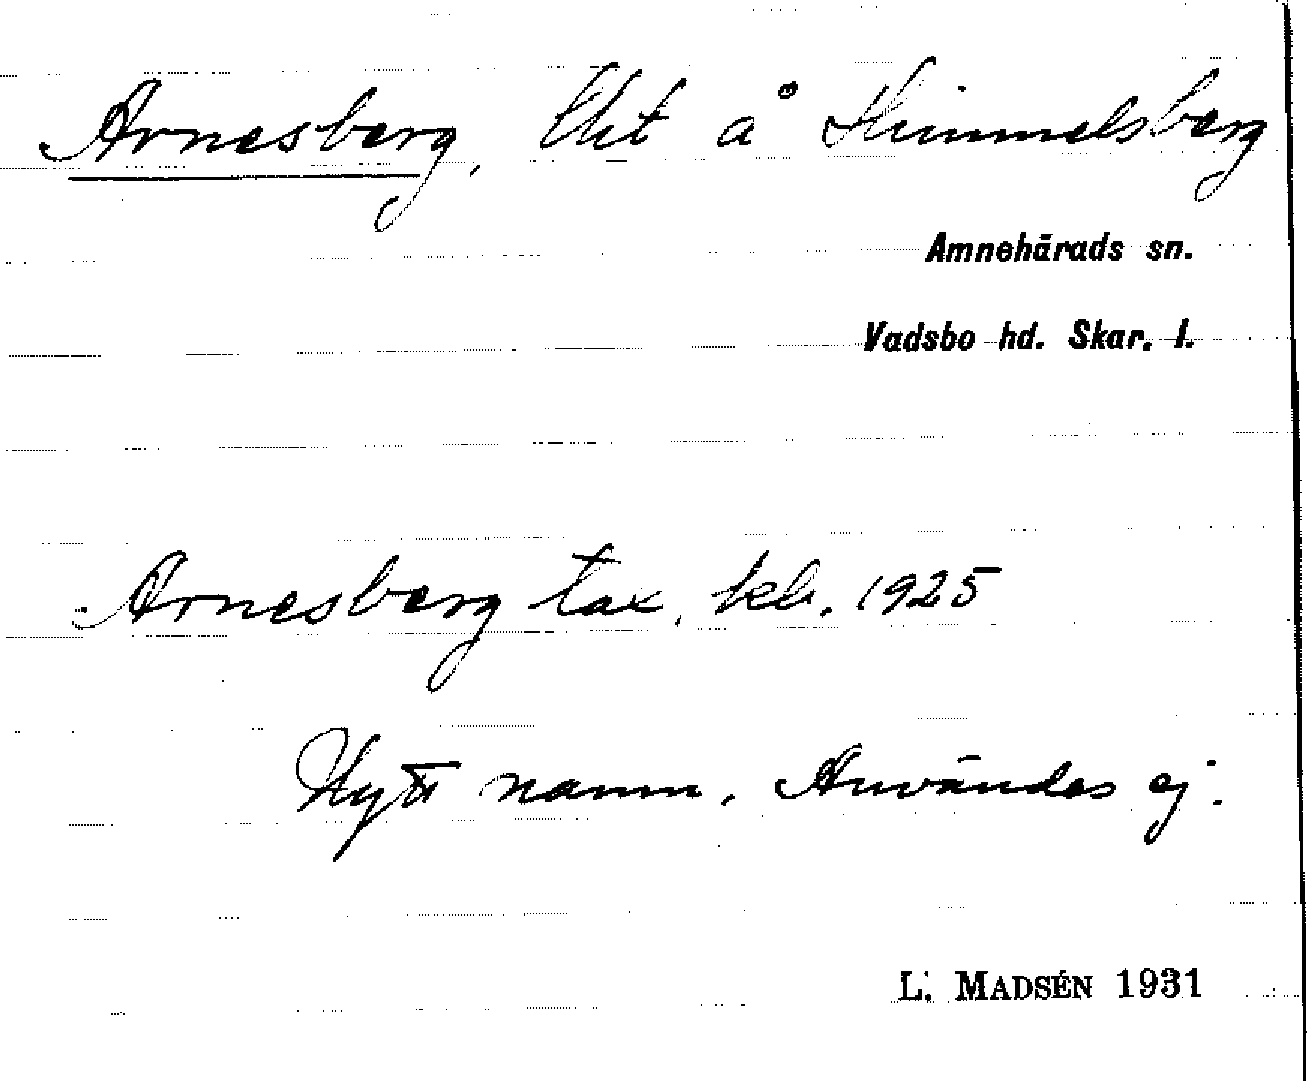 Arnesberg, Utt å Himmelsberg
Amnehärads sn.
Vadsbo hd. Skar. l.
Arnesberg tax. 1925
Nytt namn. Användes ej.
L. MADSÉN 1931